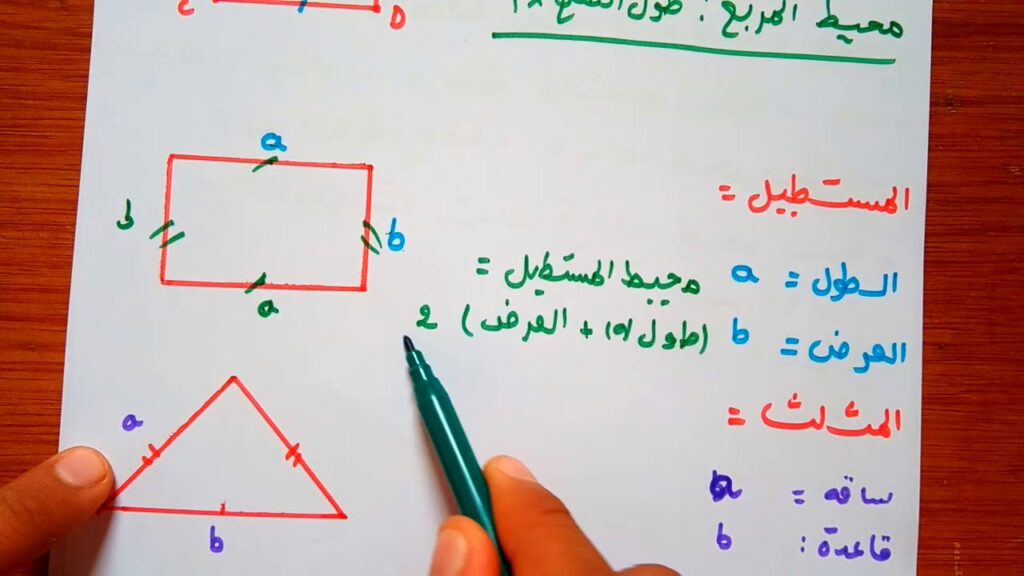 C D
محيط المربع : طول الضلع x 4
a
b b
a
المستطيل =
الطول = a
العرض = b
محيط المستطيل =
(طول + العرض) 2
المثلث =
ساقه = a
قاعدة : b
a
b